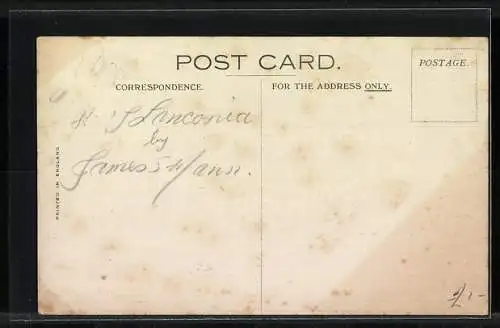 POST CARD.
CORRESPONDENCE.
FOR THE ADDRESS ONLY.
POSTAGE.
Franconia
by
James S Mann.
PRINTED IN ENGLAND